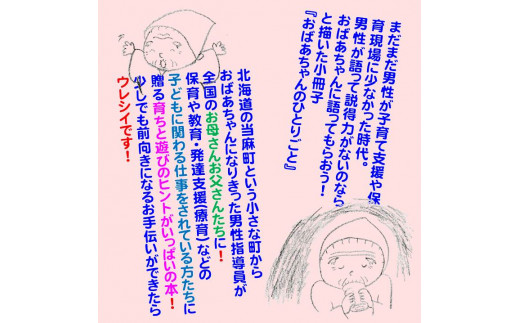 まだまだ男性が子育て支援や保
育現場に少なかった時代。
男性が語って説得力がないのなら
おばあちゃんに語ってもらおう！
と描いた小冊子
『おばあちゃんのひとりごと』
北海道の当麻町という小さな町から
おばあちゃんになりきった男性指導員が
全国のお母さんお父さんたちに！
保育や教育・発達支援(療育)などの
子どもに関わる仕事をされている方たちに
贈る育ちと遊びのヒントがいっぱいの本！
少しでも前向きになるお手伝いができたら
ウレシイです！